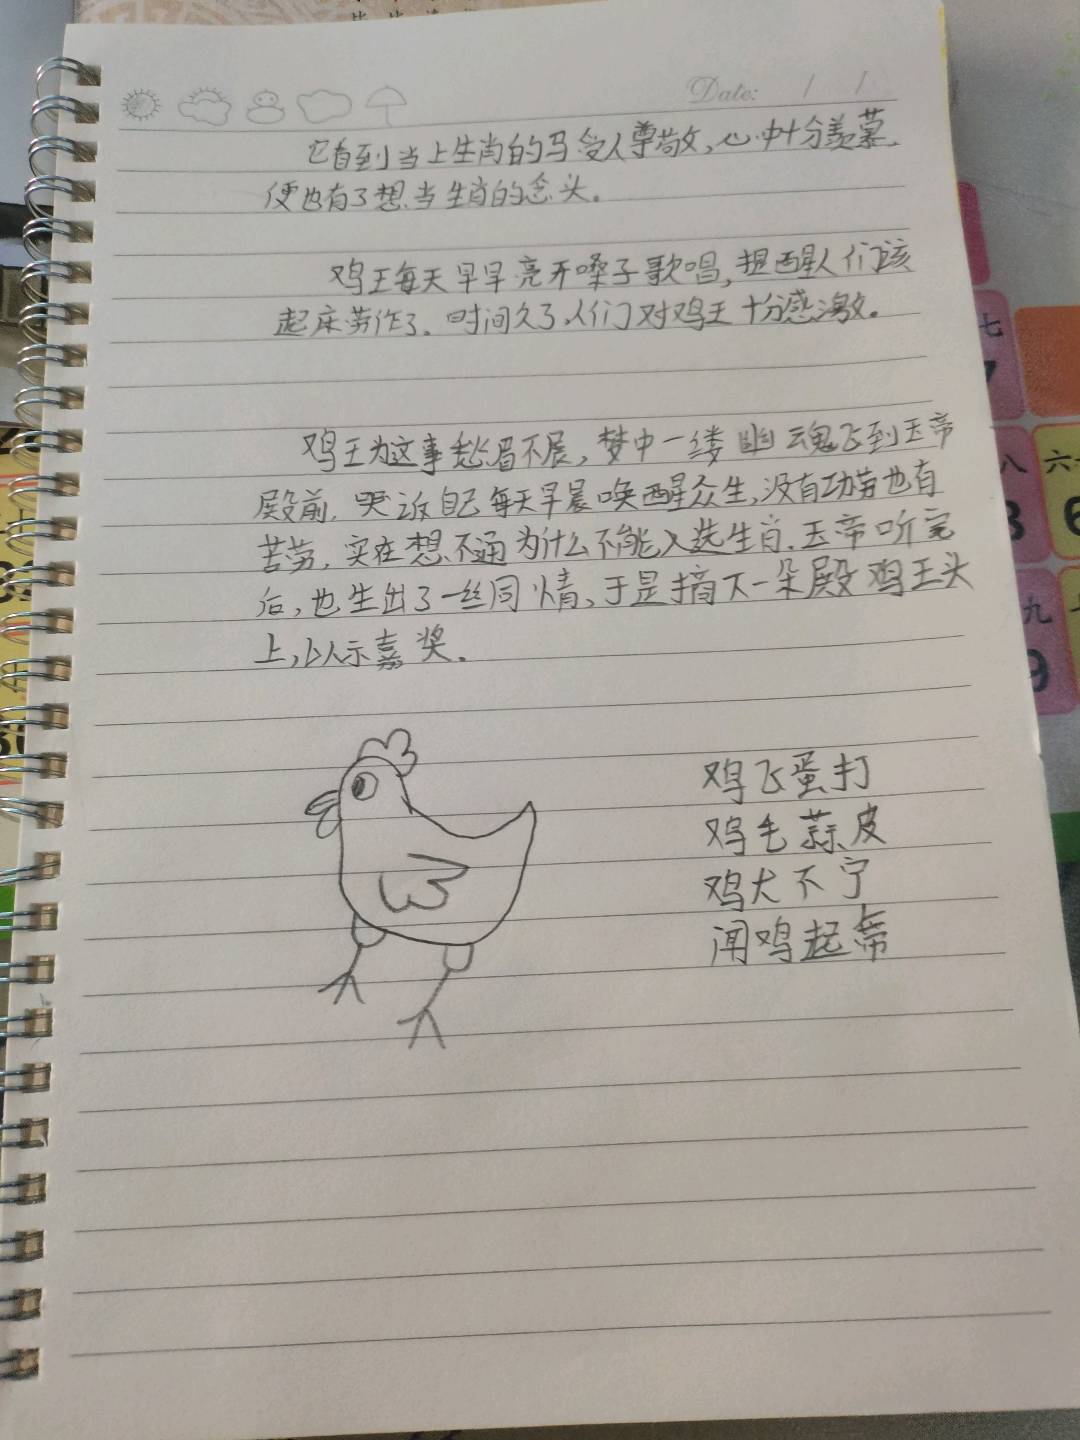 Date: / /
它看到当上生肖的马受人尊敬,心中十分羡慕,
便也有了想当生肖的念头。
鸡王每天早早亮开嗓子歌唱,提醒人们该
起床劳作了。时间久了,人们对鸡王十分感激。
鸡王为这事愁眉不展,梦中一缕幽魂飞到玉帝
殿前,哭诉自己每天早晨唤醒众生,没有功劳也有
苦劳,实在想不通为什么不能入选生肖,玉帝听完
后,也生出了一丝同情,于是摘下一朵殿鸡王头
上,以示嘉奖。
鸡飞蛋打
鸡毛蒜皮
鸡犬不宁
闻鸡起
七
7
八
六
6
九
9